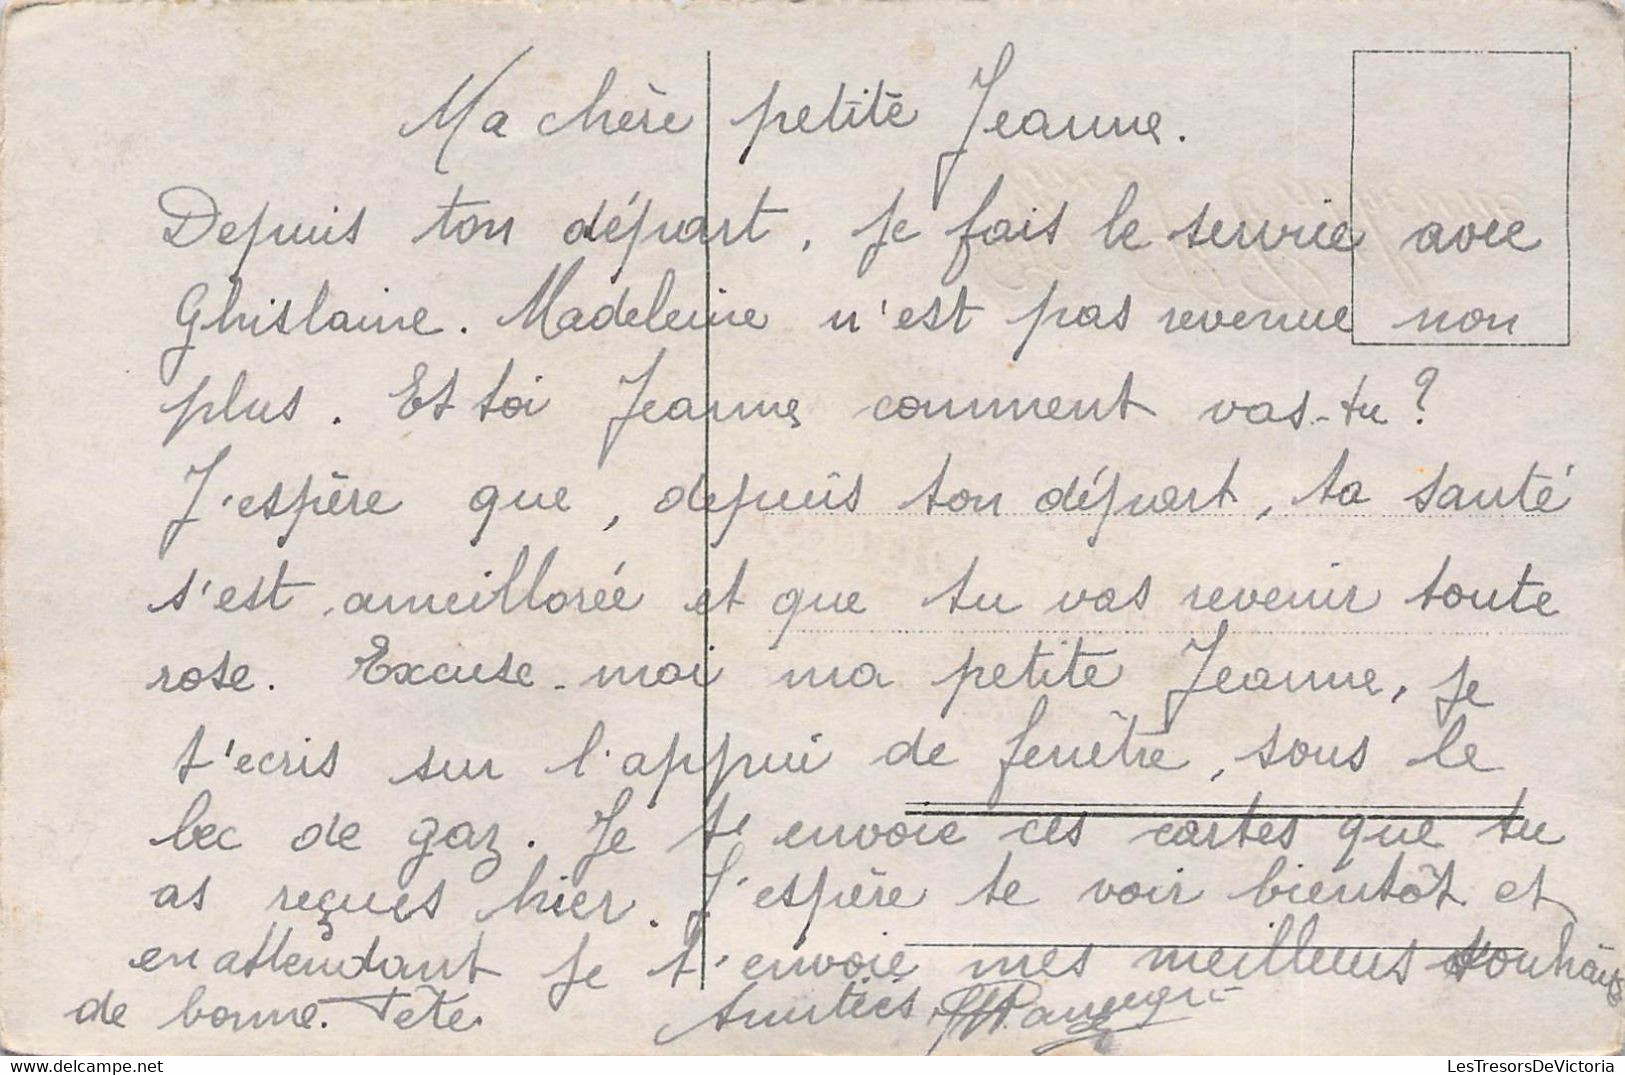 Ma chère petite Jeanne.
Depuis ton départ, je fais le service avec
Ghislaine. Madeleine n'est pas revenue non
plus. Et toi Jeanne comment vas-tu?
J'espère que, depuis ton départ, ta santé
s'est ameillorée et que tu vas revenir toute
rose. Excuse-moi ma petite Jeanne, je
t'ecris sur l'appui de fenêtre, sous le
bec de gaz. Je t'envoie ces cartes que tu
as reçues hier. J'espère te voir bientôt et
en attendant je t'envoie mes meilleurs souhaits
de bonne Fête. Amitiés
LesTresorsDeVictoria